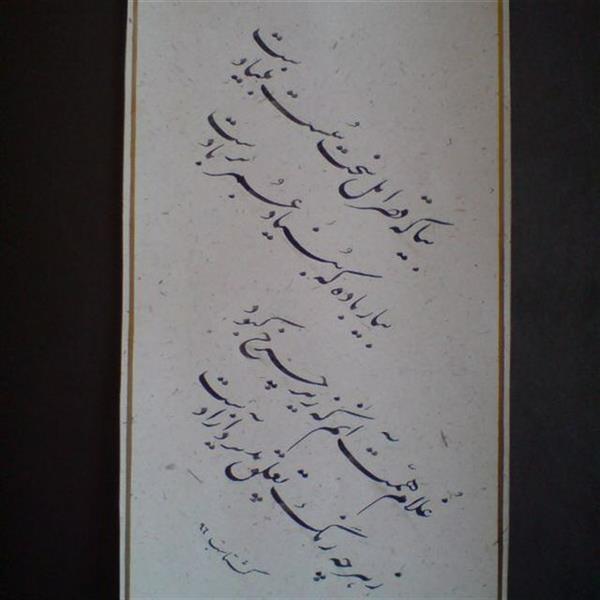 بیا که قصر امل سخت سست بنیادست
بیار باده که بنیاد عمر بر بادست
غلام همت آنم که زیر چرخ کبود
ز هر چه رنگ تعلق پذیرد آزادست